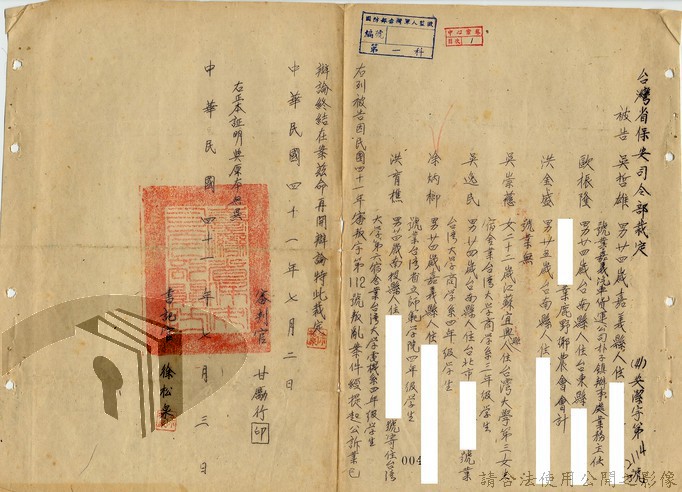 國防部台灣軍人監獄
編號
第一科
台灣省保安司令部裁定
(41)安潔字第2114號
被告 吳哲雄 男廿四歲嘉義縣人住
號業嘉義汽車貨運公司朴子鎮辦事處業務主任
歐振隆 男廿四歲台南縣人住台東縣
業鹿野鄉農會會計
洪金盛 男廿五歲台南縣人住
號業無
吳崇慈 女二十二歲江蘇宜興人住台灣大學第三女生
宿舍業台灣大學商學系三年級學生
吳逸民 男廿四歲台南縣人住台北市 號業
台灣大學商學系四年級學生
涂炳榔 男廿四歲嘉義縣人住
號業台灣省立師範學院四年級學生
洪育樵 男廿四歲南投縣人住 號寄住台灣
大學第六宿舍業台灣大學電機系四年級學生
右列被告因民國四十一年審板字第112號叛亂案件經提起公訴業已
辯論終結在案茲命再開辯論特此裁定
中華民國四十一年七月二日
審判官 甘勵行 印
右正本証明與原本無異
中華民國四十一年七月三日
書記官 徐松泉
004
請合法使用公開之影像